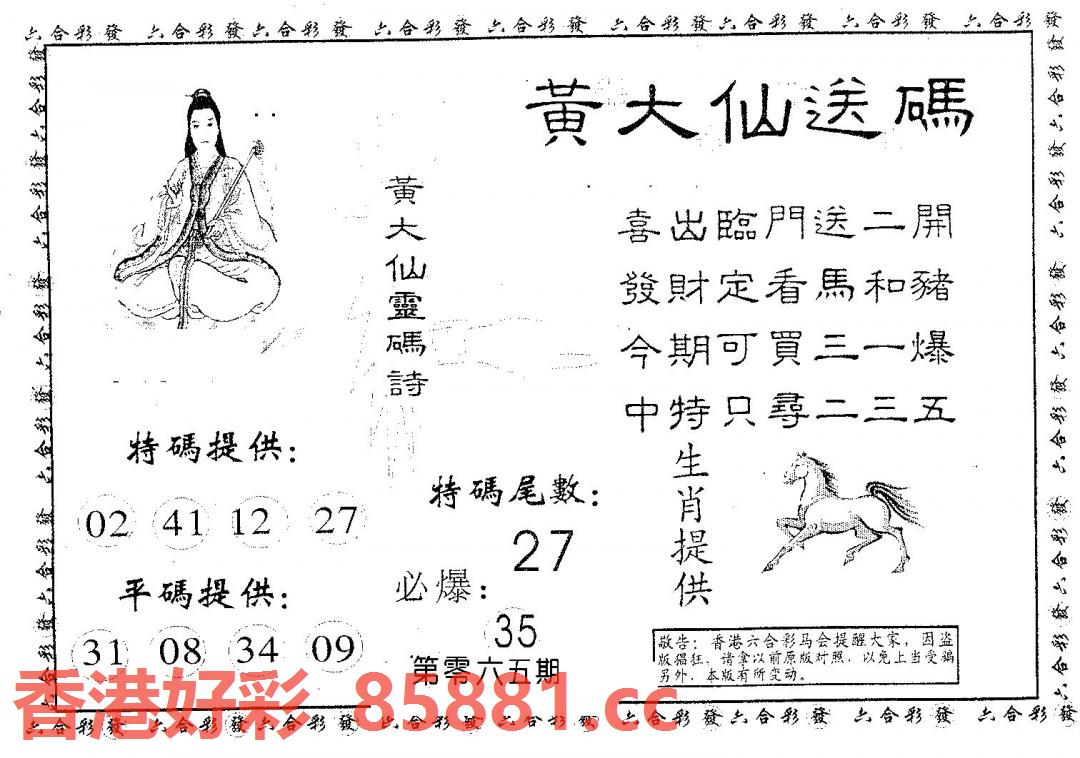 六合彩發 六合彩發 六合彩發 六合彩發 六合彩發 六合彩發 六合彩發 六合彩發 六合彩發
黃大仙送碼
黃大仙靈碼詩
喜出臨門送二開
發財定看馬和豬
今期可買三一爆
中特只尋二三五
特碼提供：
02 41 12 27
平碼提供：
31 08 34 09
特碼尾數：
27
必爆：
35
第零六五期
生肖提供
敬告：香港六合彩马会提醒大家，因盗
版猖狂，请拿以前原版对照，以免上当受骗
另外，本版有所变动。
香港好彩 85881.cc